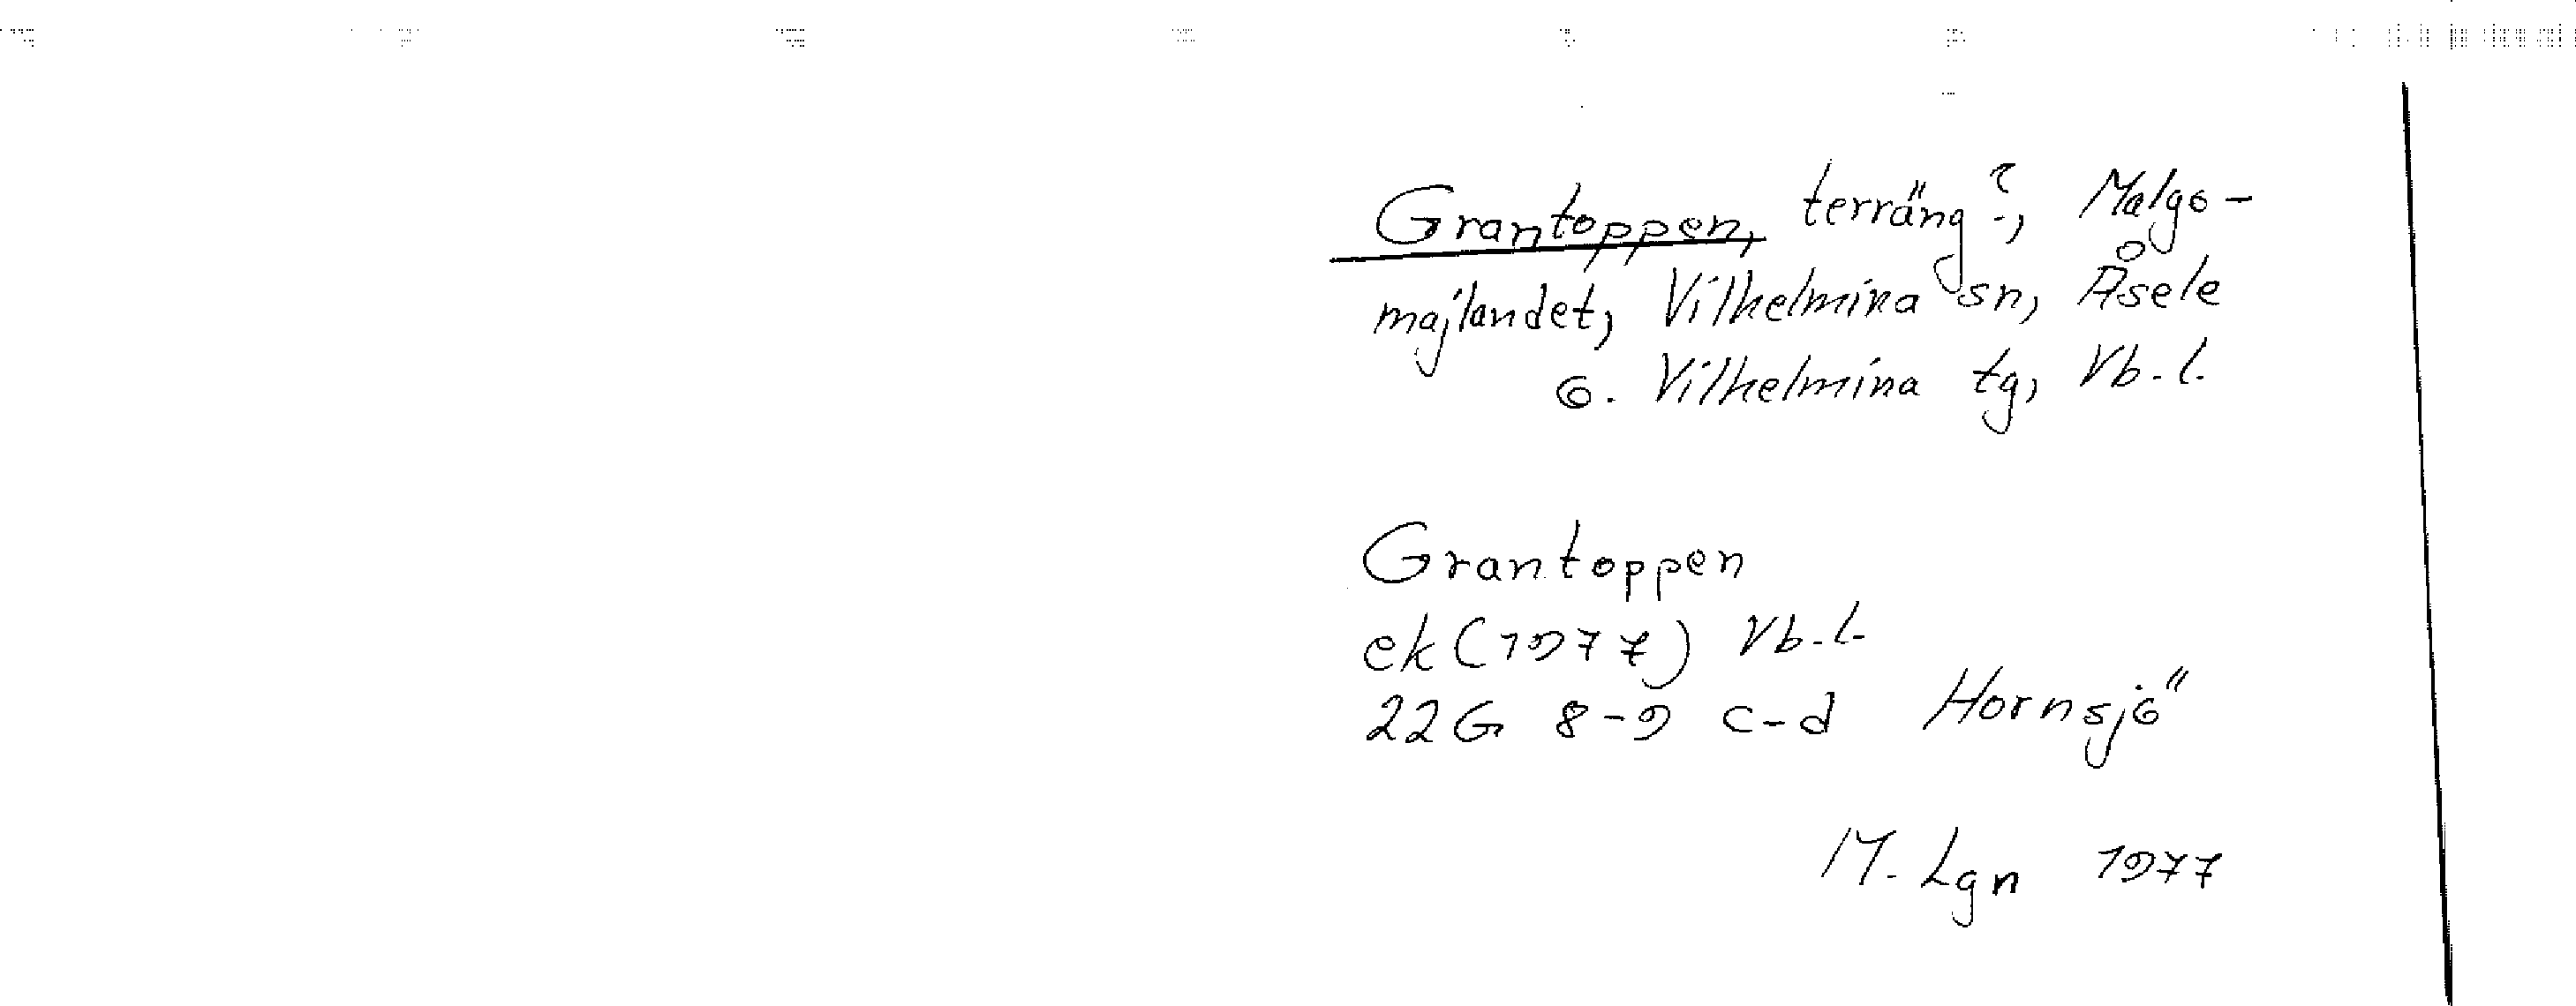 Grantoppen, terräng?, Malgo-
majlandet, Vilhelmina sn, Åsele
o. Vilhelmina tg, Vb.l.
Grantoppen
ek (1977) Vb.l.
22G 8-9 c-d Hornsjö
M. Lgn 1977